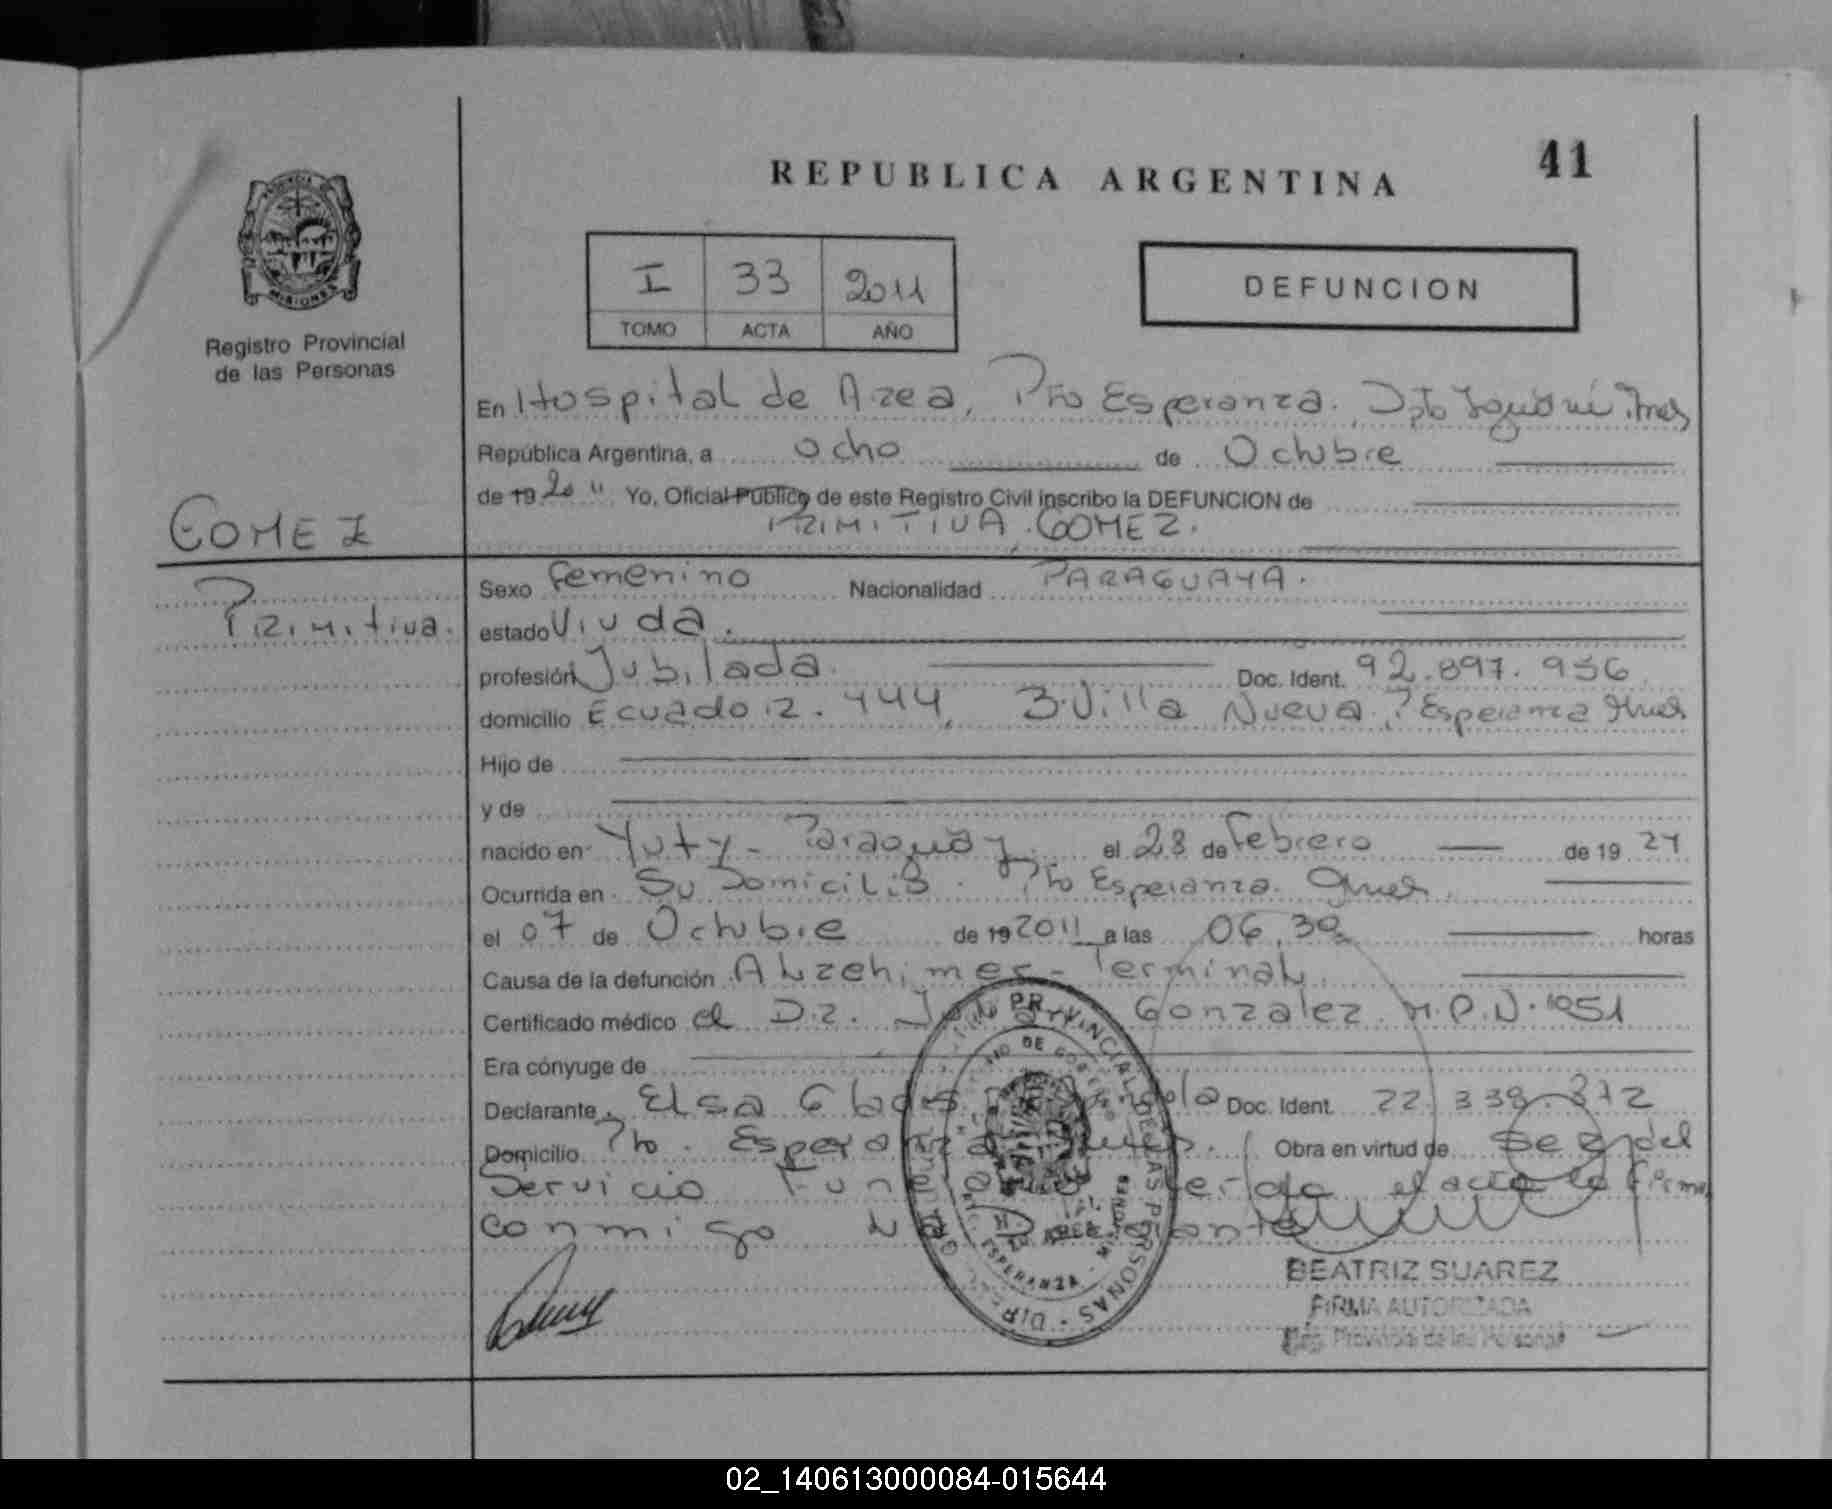 41
REPUBLICA ARGENTINA
MISIONES
Registro Provincial
de las Personas
I 33 2011
TOMO ACTA AÑO
DEFUNCION
En Hospital de Area, Pto Esperanza. Dpto Iguazú Mnes
República Argentina, a ocho de Octubre
de 19 2011 Yo, Oficial Público de este Registro Civil inscribo la DEFUNCION de
PRIMITIVA GOMEZ.
GOMEZ
Primitiva.
Sexo femenino Nacionalidad PARAGUAYA.
estado Viuda.
profesión Jubilada. Doc. Ident. 92.897.936
domicilio Ecuador. 444, B. Villa Nueva. P. Esperanza
Hijo de
y de
nacido en Yuty - Paraguay el 28 de Febrero de 19 24
Ocurrida en Su Domicilio. Pto Esperanza.
el 07 de Octubre de 19 2011 a las 06,30 horas
Causa de la defunción Alzehimer - Terminal
Certificado médico el Dr. Gonzalez M.P.N. 1051
Era cónyuge de
Declarante Elsa Doc. Ident. 22.339.372
Domicilio Pto. Esperanza Obra en virtud de Ser del
Servicio el acta la firma
conmigo
BEATRIZ SUAREZ
FIRMA AUTORIZADA
Reg. Provincial de las Personas
02_140613000084-015644